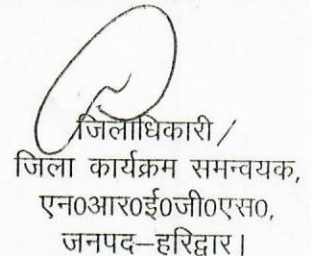 जिलाधिकारी /
जिला कार्यक्रम समन्वयक,
एन0आर0ई0जी0एस0,
जनपद–हरिद्वार।